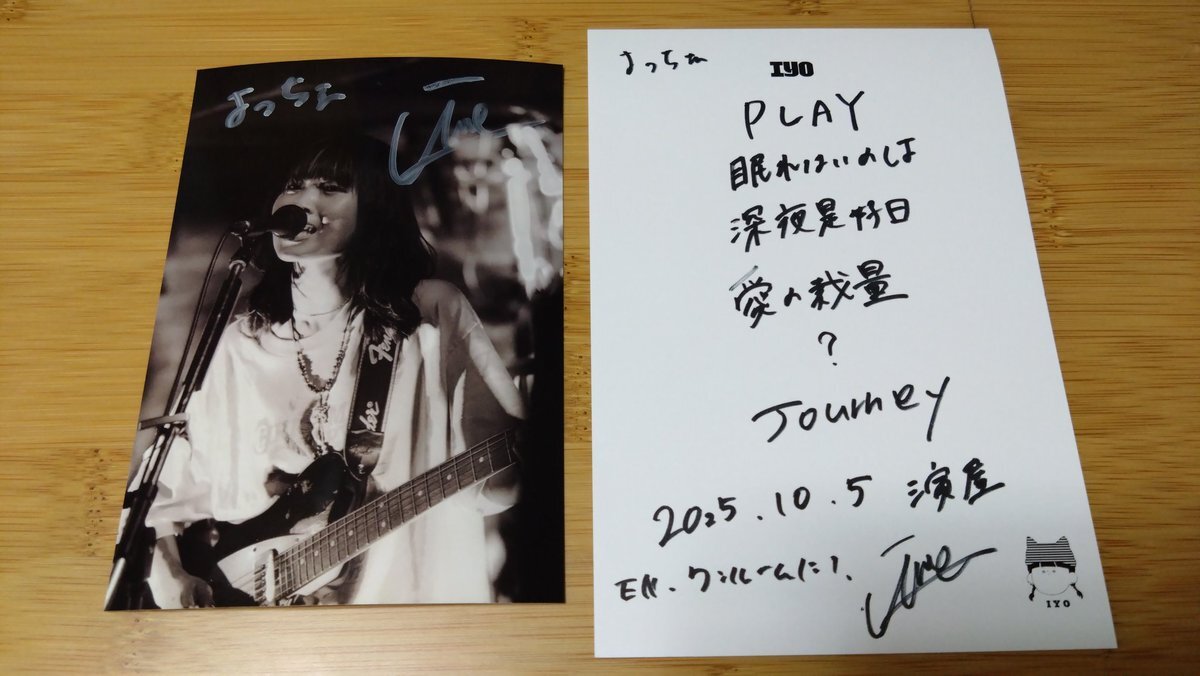 よっちゃん
Fender
よっちゃん
IYO
PLAY
眠れないのは
深夜是好日
愛の裁量
?
Journey
2025.10.5 演屋
EN.ワンルームに1.
IYO